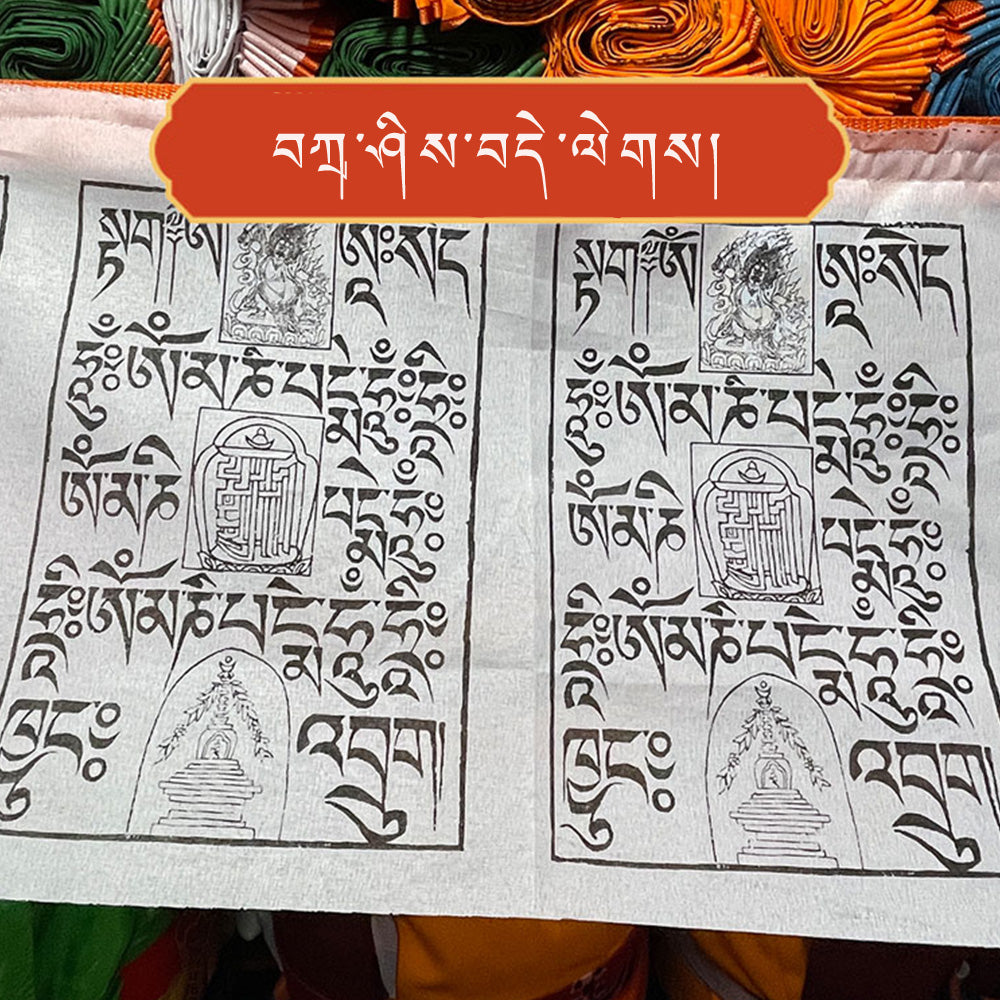 བཀྲ་ཤིས་བདེ་ལེགས།
སྟག ཨོཾ ཨཱཿ སེང
ཧཱུྃ༔ ཨོཾ་མ་ཎི་པདྨེ་ཧཱུྃ༔ ཧྲཱིཿ
ཨོཾ་མ་ཎི པདྨེ་ཧཱུྃ༔
ཧྲཱིཿ ཨོཾ་མ་ཎི་པདྨེ་ཧཱུྃ་ཧྲཱིཿ
ཁྱུང༔ འབྲུག།
སྟག ཨོཾ ཨཱཿ སེང
ཧཱུྃ༔ ཨོཾ་མ་ཎི་པདྨེ་ཧཱུྃ༔ ཧྲཱིཿ
ཨོཾ་མ་ཎི པདྨེ་ཧཱུྃ༔
ཧྲཱིཿ ཨོཾ་མ་ཎི་པདྨེ་ཧཱུྃ་ཧྲཱིཿ
ཁྱུང༔ འབྲུག།